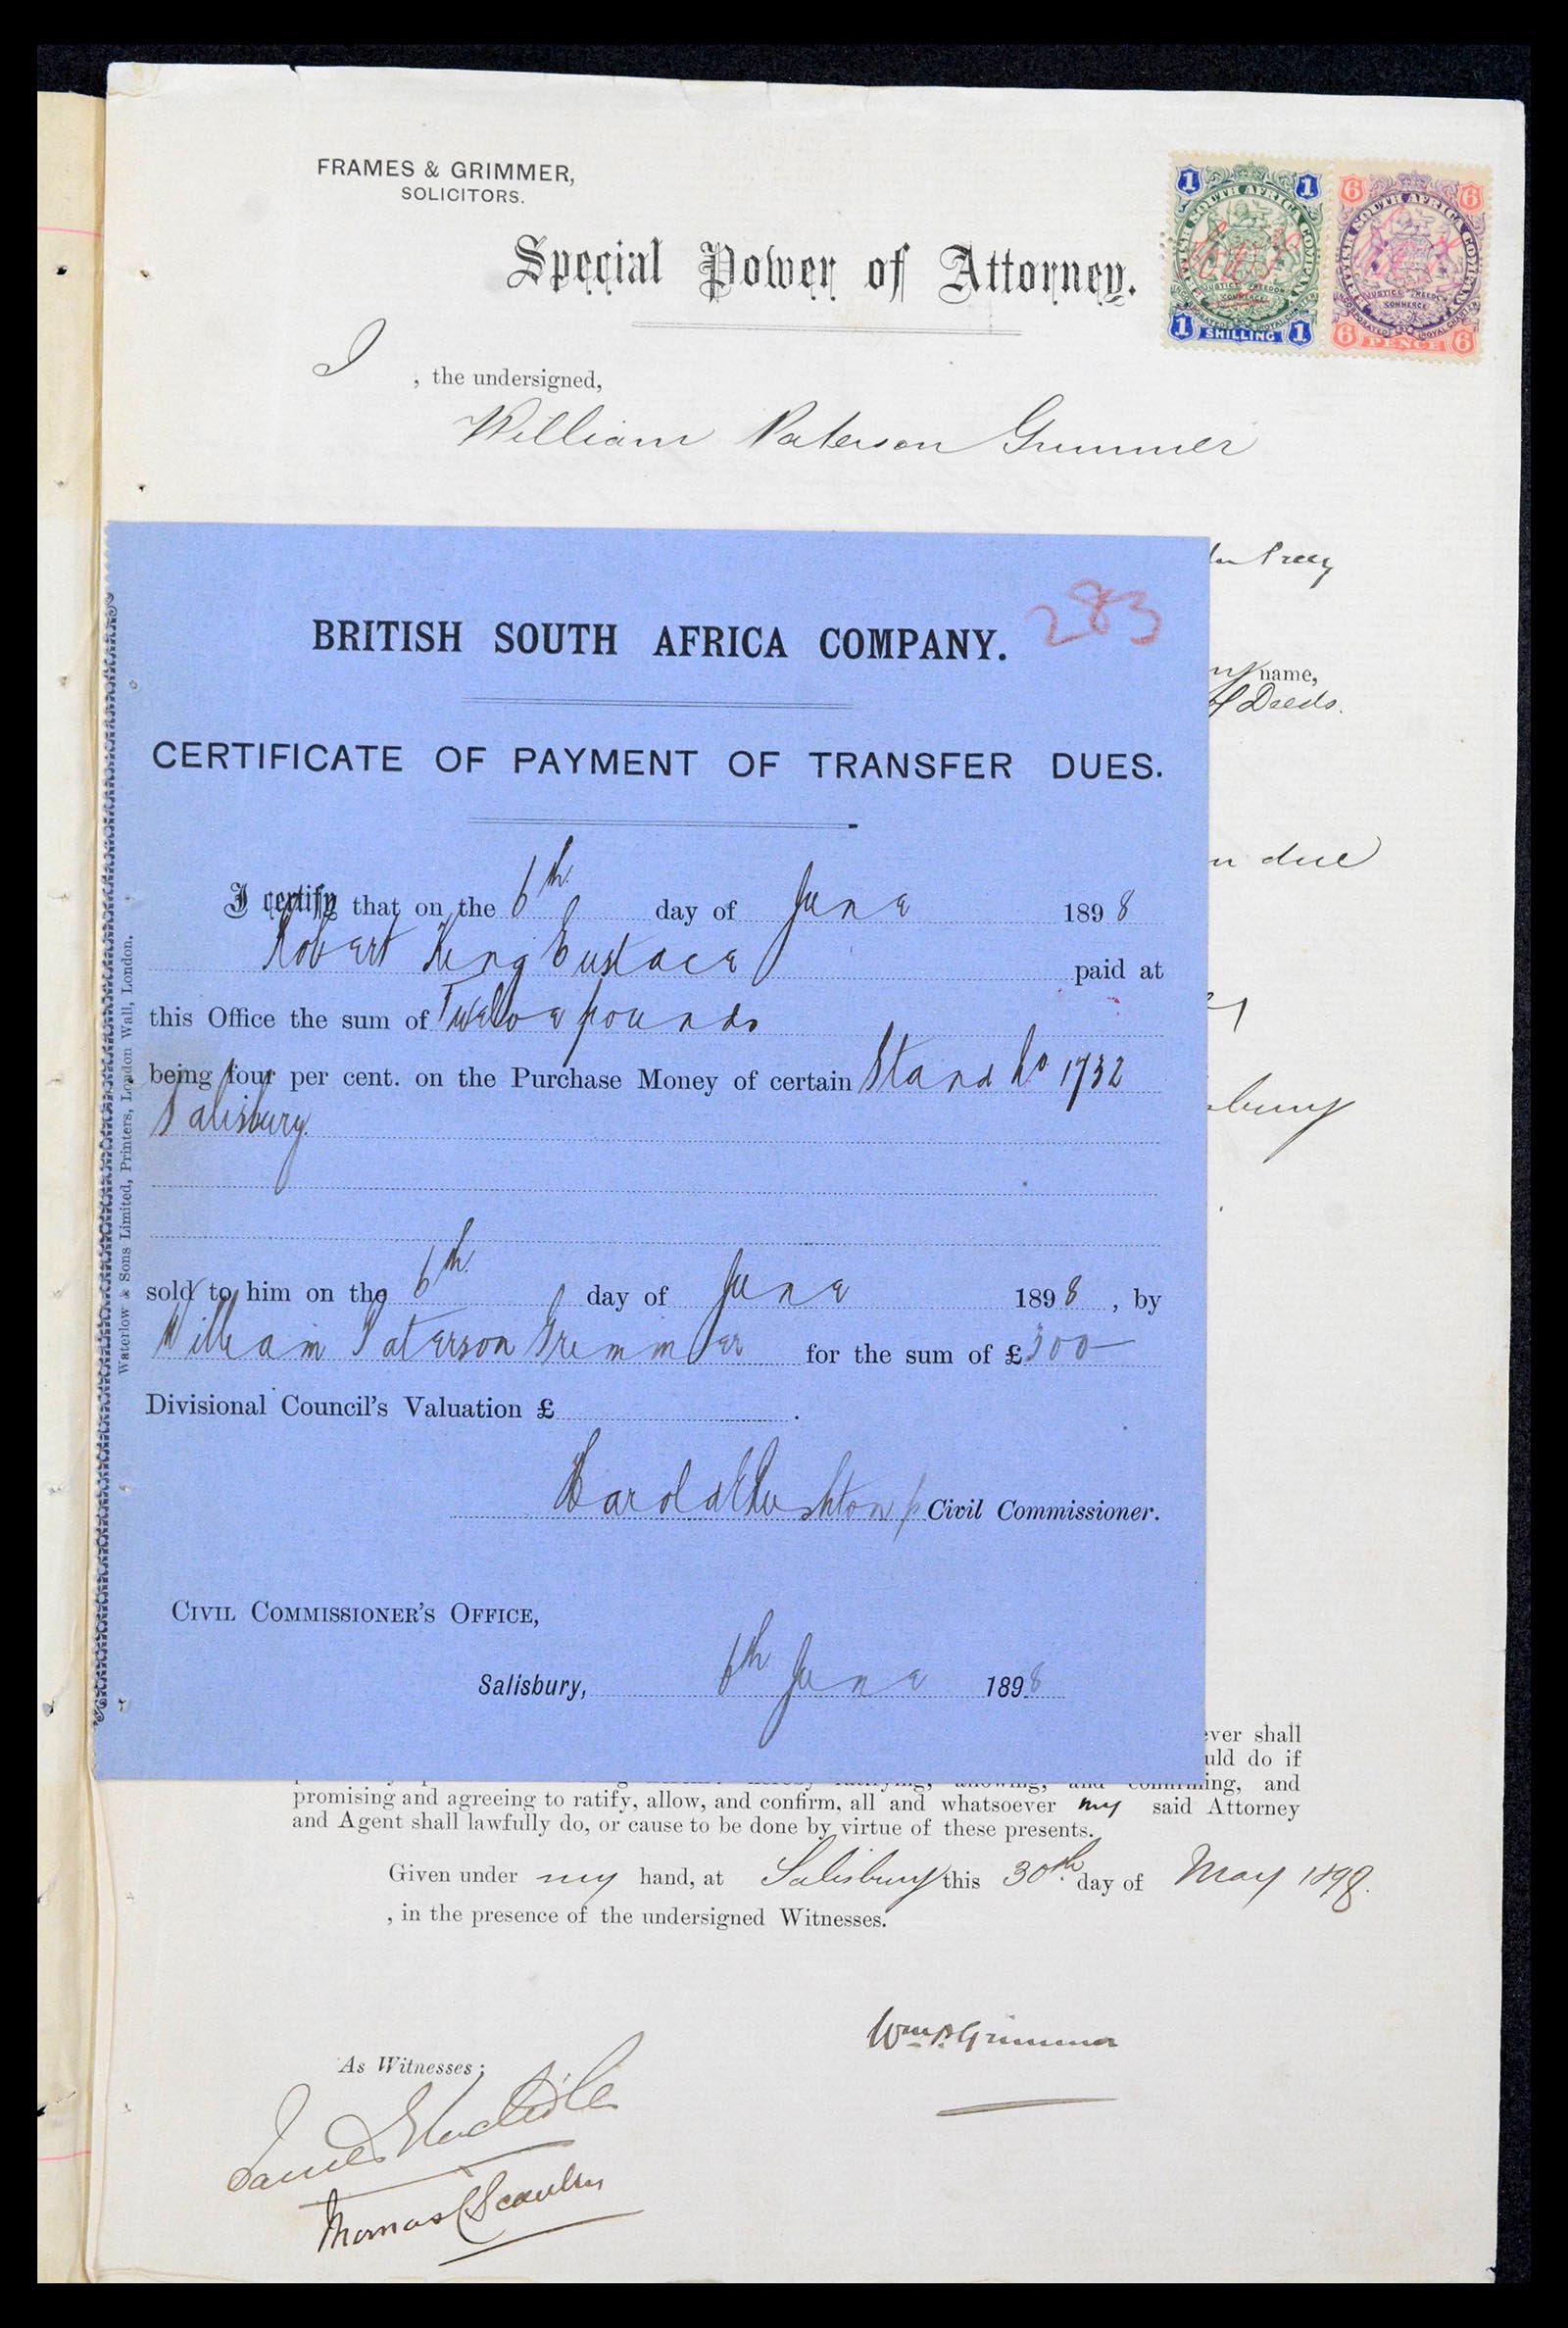 FRAMES & GRIMMER,
SOLICITORS.
Special Power of Attorney.
1 1
BRITISH SOUTH AFRICA COMPANY
JUSTICE FREEDOM
COMMERCE
1 SHILLING 1
6 6
BRITISH SOUTH AFRICA COMPANY
JUSTICE FREEDOM
COMMERCE
6 PENCE 6
I , the undersigned,
William Paterson Grimmer
name,
of Deeds.
due
BRITISH SOUTH AFRICA COMPANY. 283
CERTIFICATE OF PAYMENT OF TRANSFER DUES.
I certify that on the 6th day of June 1898
Robert King Eustace paid at
this Office the sum of Twelve pounds
being four per cent. on the Purchase Money of certain Stand No 1732
Salisbury.
sold to him on the 6th day of June 1898, by
William Paterson Grimmer for the sum of £300
Divisional Council's Valuation £ .
Civil Commissioner.
CIVIL COMMISSIONER'S OFFICE,
Salisbury, 6th June 1898
Waterlow & Sons Limited, Printers, London Wall, London.
ever shall
uld do if
and
promising and agreeing to ratify, allow, and confirm, all and whatsoever my said Attorney
and Agent shall lawfully do, or cause to be done by virtue of these presents.
Given under my hand, at Salisbury this 30th day of May 1898.
, in the presence of the undersigned Witnesses.
Wm P. Grimmer
As Witnesses;
James
Thomas